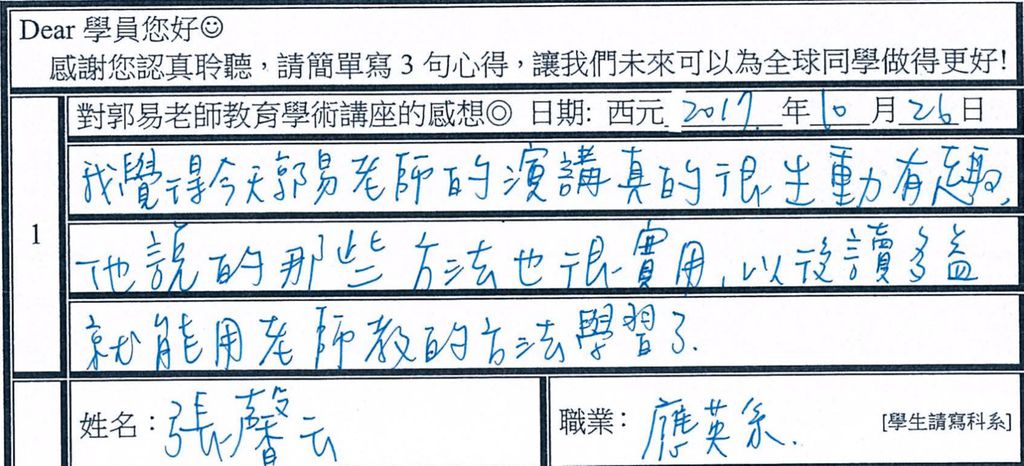 Dear 學員您好☺
感謝您認真聆聽，請簡單寫 3 句心得，讓我們未來可以為全球同學做得更好!
對郭易老師教育學術講座的感想◎ 日期: 西元 2017 年 10 月 26 日
我覺得今天郭易老師的演講真的很生動有趣,
1
他說的那些方法也很實用,以後讀多益
就能用老師教的方法學習了.
姓名：張馨云 職業： 應英系. [學生請寫科系]